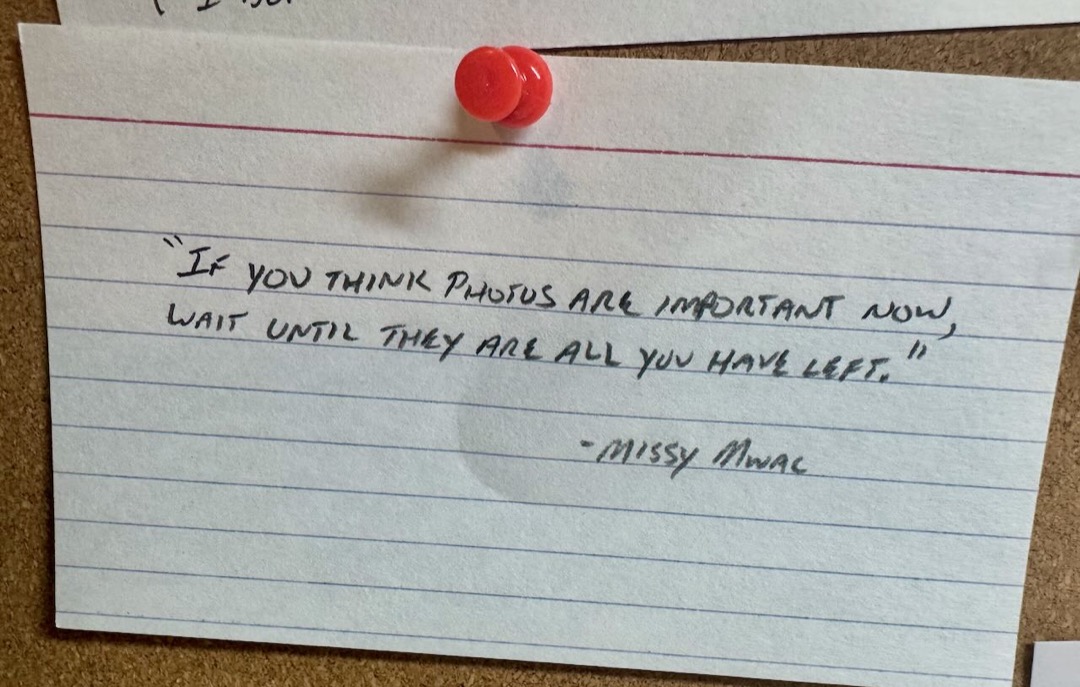 "If you think photos are important now,
wait until they are all you have left."
-Missy Mwac